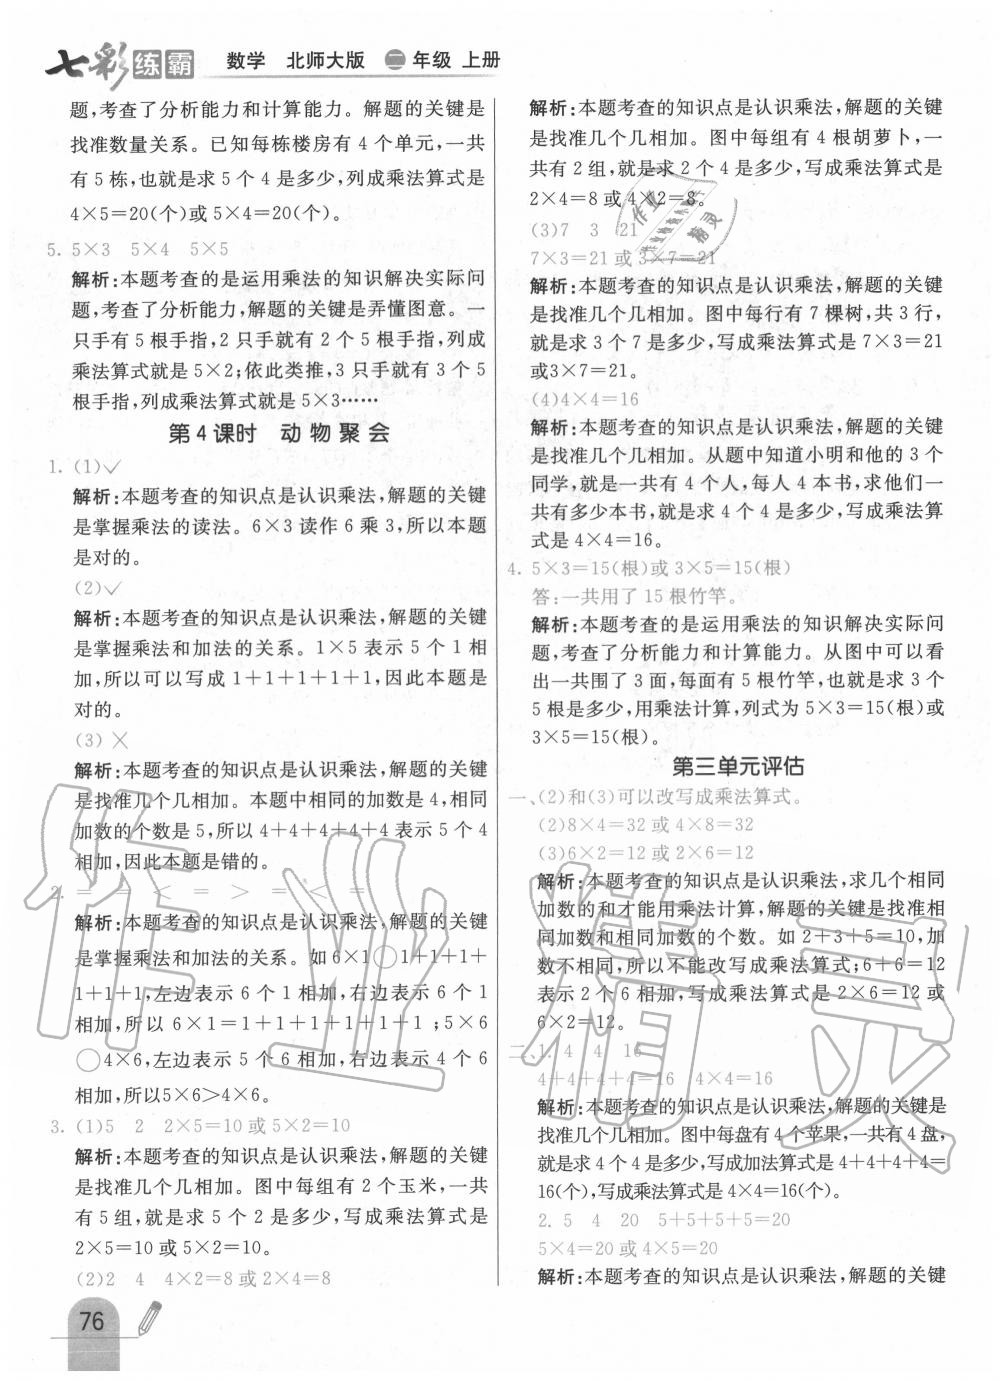 七彩练霸 数学 北师大版 二年级 上册
题,考查了分析能力和计算能力。解题的关键是
找准数量关系。已知每栋楼房有4个单元,一共
有5栋,也就是求5个4是多少,列成乘法算式是
4×5=20(个)或5×4=20(个)。
5. 5×3 5×4 5×5
解析:本题考查的是运用乘法的知识解决实际问
题,考查了分析能力,解题的关键是弄懂图意。一
只手有5根手指,2只手就有2个5根手指,列成
乘法算式就是5×2;依此类推,3只手就有3个5
根手指,列成乘法算式就是5×3……
第4课时 动物聚会
1. (1)✓
解析:本题考查的知识点是认识乘法,解题的关键
是掌握乘法的读法。6×3读作6乘3,所以本题
是对的。
(2)✓
解析:本题考查的知识点是认识乘法,解题的关键
是掌握乘法和加法的关系。1×5表示5个1相
加,所以可以写成1+1+1+1+1,因此本题是
对的。
(3)×
解析:本题考查的知识点是认识乘法,解题的关键
是找准几个几相加。本题中相同的加数是4,相同
加数的个数是5,所以4+4+4+4+4表示5个4
相加,因此本题是错的。
2. = > < = > = < =
解析:本题考查的知识点是认识乘法,解题的关键
是掌握乘法和加法的关系。如6×1○1+1+1+
1+1+1,左边表示6个1相加,右边表示6个1
相加,所以6×1=1+1+1+1+1+1;5×6
○4×6,左边表示5个6相加,右边表示4个6
相加,所以5×6>4×6。
3. (1)5 2 2×5=10或5×2=10
解析:本题考查的知识点是认识乘法,解题的关键
是找准几个几相加。图中每组有2个玉米,一共
有5组,就是求5个2是多少,写成乘法算式是
2×5=10或5×2=10。
(2)2 4 4×2=8或2×4=8
解析:本题考查的知识点是认识乘法,解题的关键
是找准几个几相加。图中每组有4根胡萝卜,一
共有2组,就是求2个4是多少,写成乘法算式是
2×4=8或4×2=8。
(3)7 3 21
7×3=21或3×7=21
解析:本题考查的知识点是认识乘法,解题的关键
是找准几个几相加。图中每行有7棵树,共3行,
就是求3个7是多少,写成乘法算式是7×3=21
或3×7=21。
(4)4×4=16
解析:本题考查的知识点是认识乘法,解题的关键
是找准几个几相加。从题中知道小明和他的3个
同学,就是一共有4个人,每人4本书,求他们一
共有多少本书,就是求4个4是多少,写成乘法算
式是4×4=16。
4. 5×3=15(根)或3×5=15(根)
答:一共用了15根竹竿。
解析:本题考查的是运用乘法的知识解决实际问
题,考查了分析能力和计算能力。从图中可以看
出一共围了3面,每面有5根竹竿,也就是求3个
5根是多少,用乘法计算,列式为5×3=15(根)或
3×5=15(根)。
第三单元评估
一、(2)和(3)可以改写成乘法算式。
(2)8×4=32或4×8=32
(3)6×2=12或2×6=12
解析:本题考查的知识点是认识乘法,求几个相同
加数的和才能用乘法计算,解题的关键是找准相
同加数和相同加数的个数。如2+3+5=10,加
数不相同,所以不能改写成乘法算式;6+6=12
表示2个6相加,写成乘法算式是2×6=12或
6×2=12。
二、1. 4 4 16
4+4+4+4=16 4×4=16
解析:本题考查的知识点是认识乘法,解题的关键是
找准几个几相加。图中每盘有4个苹果,一共有4盘,
就是求4个4是多少,写成加法算式是4+4+4+4=
16(个),写成乘法算式是4×4=16(个)。
2. 5 4 20 5+5+5+5=20
5×4=20或4×5=20
解析:本题考查的知识点是认识乘法,解题的关键
76
作业精灵
作业精灵